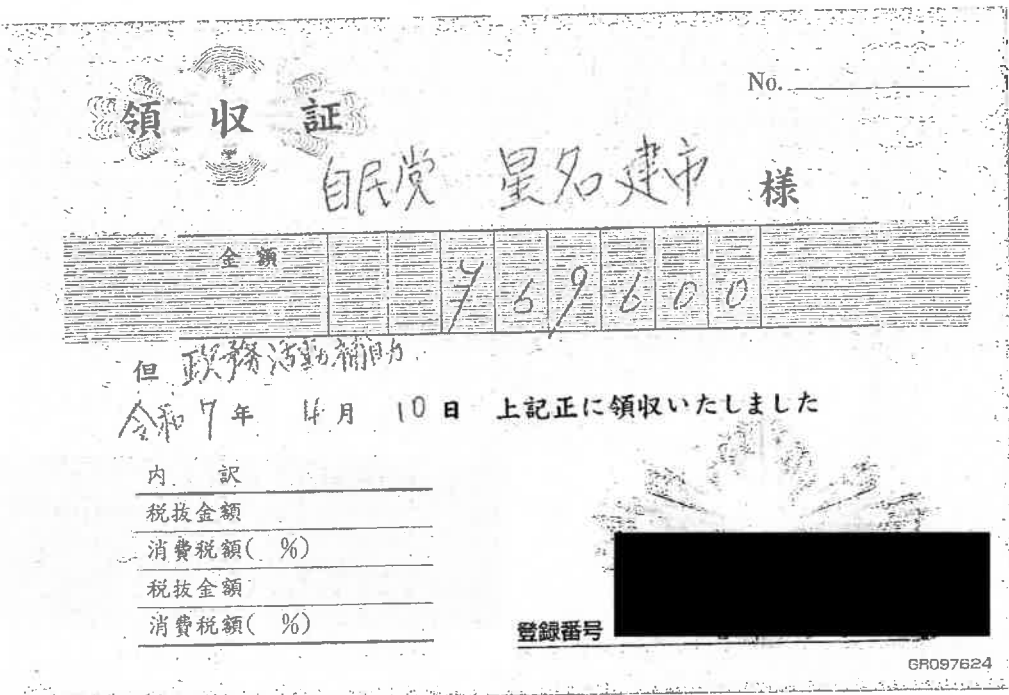 No.
領収証
自民党 星名建市 様
金額 ¥69600
但 政務活動補助
令和7年 4月 10日 上記正に領収いたしました
内 訳
税抜金額
消費税額( %)
税抜金額
消費税額( %)
登録番号
GR097624